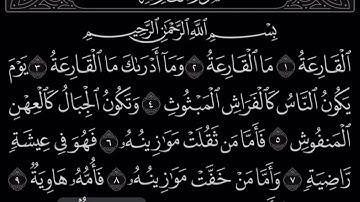 بِسْمِ ٱللَّهِ ٱلرَّحْمَٰنِ ٱلرَّحِيمِ
ٱلْقَارِعَةُ ١ مَا ٱلْقَارِعَةُ ٢ وَمَآ أَدْرَىٰكَ مَا ٱلْقَارِعَةُ ٣ يَوْمَ
يَكُونُ ٱلنَّاسُ كَٱلْفَرَاشِ ٱلْمَبْثُوثِ ٤ وَتَكُونُ ٱلْجِبَالُ كَٱلْعِهْنِ
ٱلْمَنفُوشِ ٥ فَأَمَّا مَن ثَقُلَتْ مَوَٰزِينُهُۥ ٦ فَهُوَ فِى عِيشَةٍ
رَّاضِيَةٍ ٧ وَأَمَّا مَنْ خَفَّتْ مَوَٰزِينُهُۥ ٨ فَأُمُّهُۥ هَاوِيَةٌ ٩